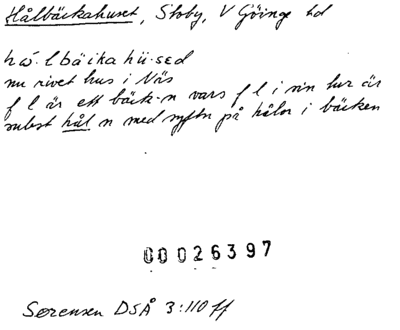 Hålbäckahuset, Stoby, V Göinge hd
hå·lbäikahü·sed
nu rivet hus i Näs
f l är ett bäck-n vars f l i sin tur är
subst hål n med syftn på hålor i bäcken
00026397
Sørensen DSÅ 3:110 ff